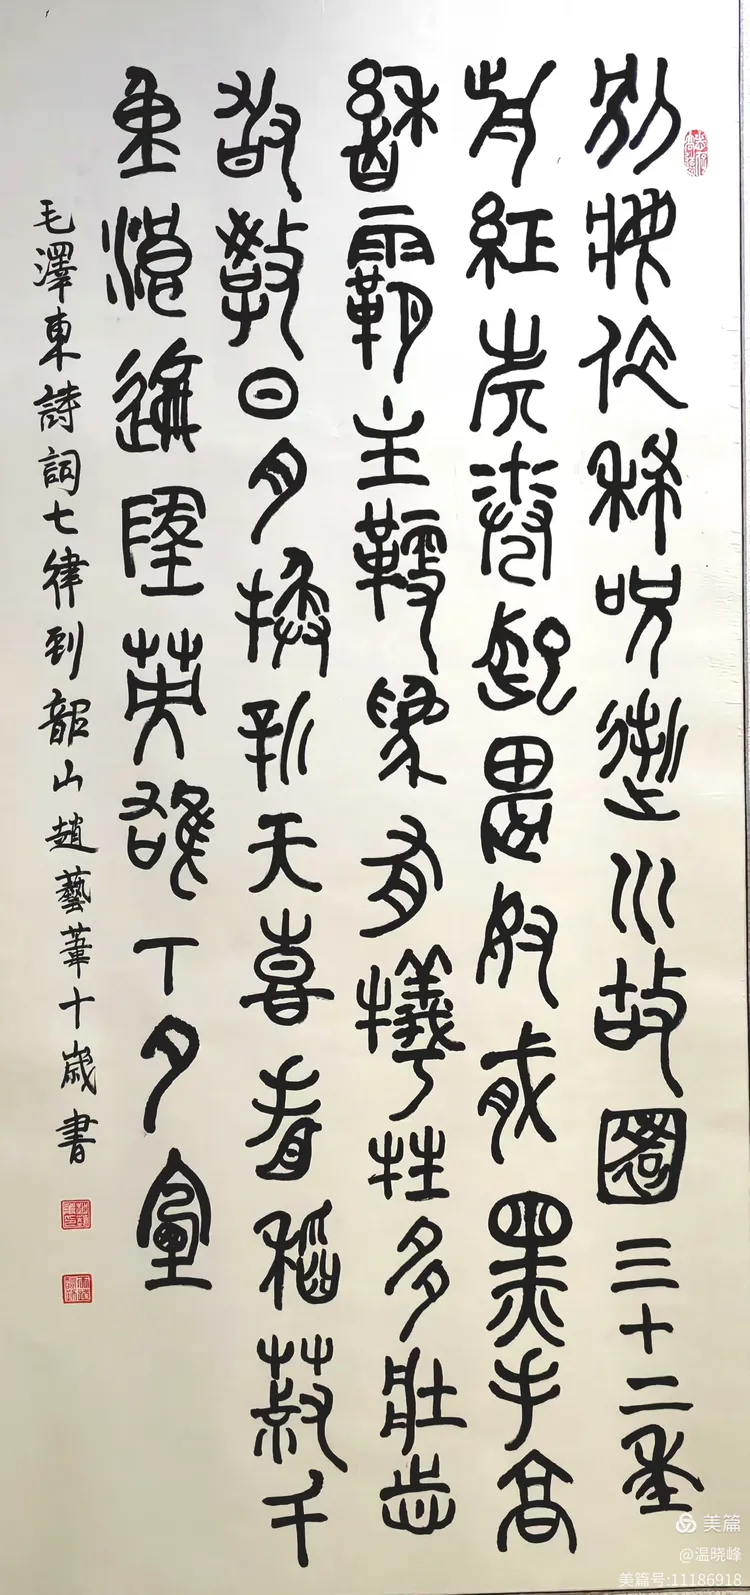 別夢依稀咒逝川故園三十二年
前紅旗卷起農奴戟黑手高
縣霸主鞭爲有犧牲多壯志
敢教日月換新天喜看稻菽千
重浪遍地英雄下夕煙
毛澤東詩詞七律到韶山趙藝葦十歲書
美篇
@温晓峰
美篇号:11186918